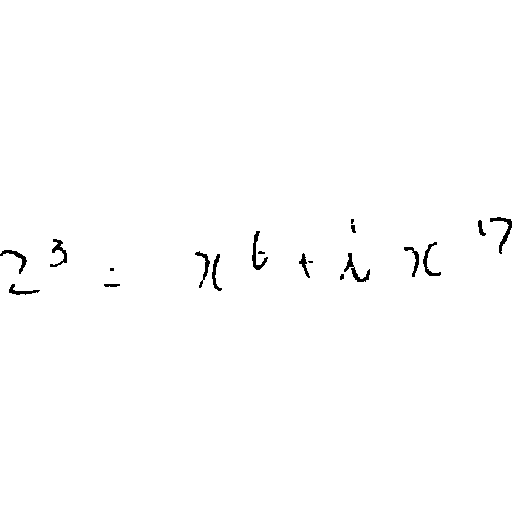 z³ = x⁶ + i x¹⁷